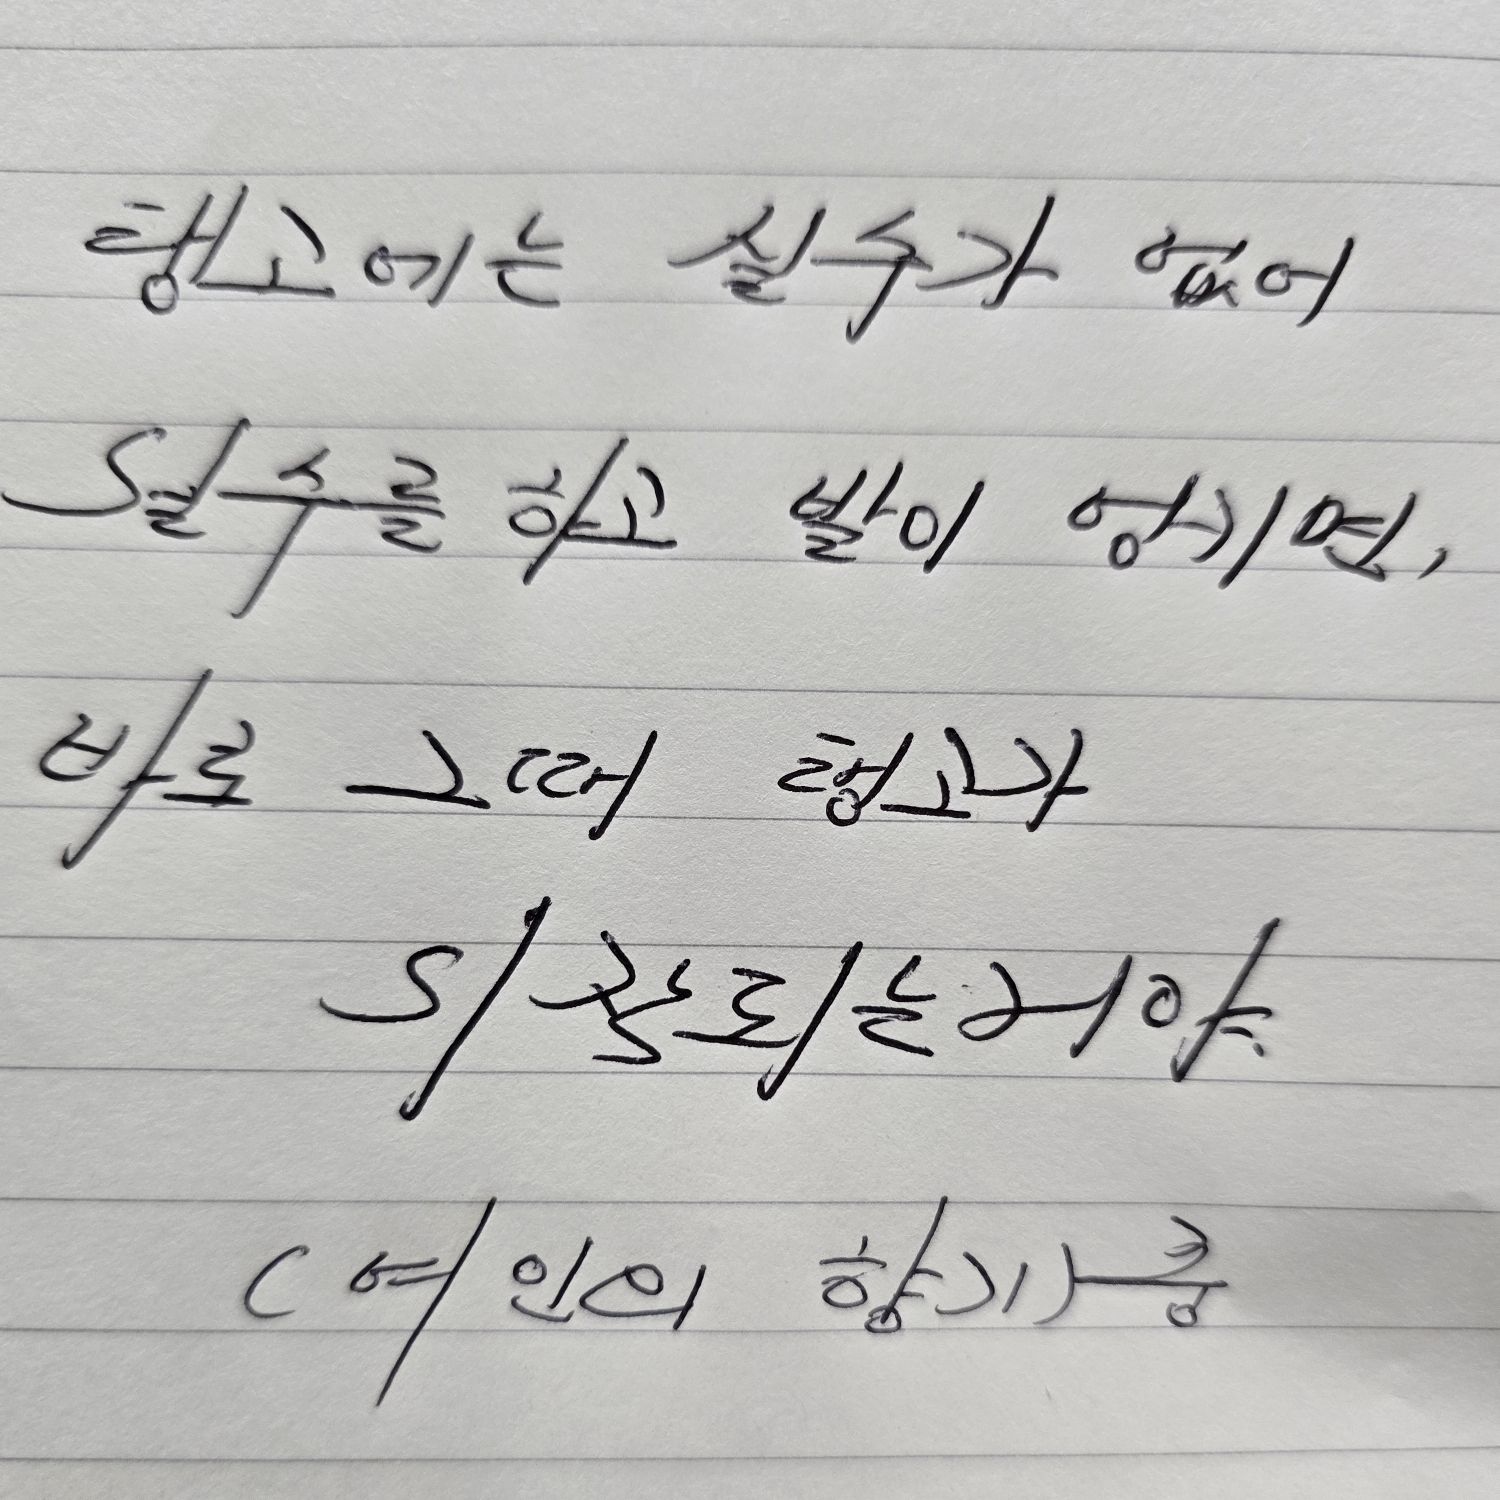 탱고에는 실수가 없어
실수를 하고 발이 엉키면,
바로 그때 탱고가
시작되는거야.
(여인의 향기) 중